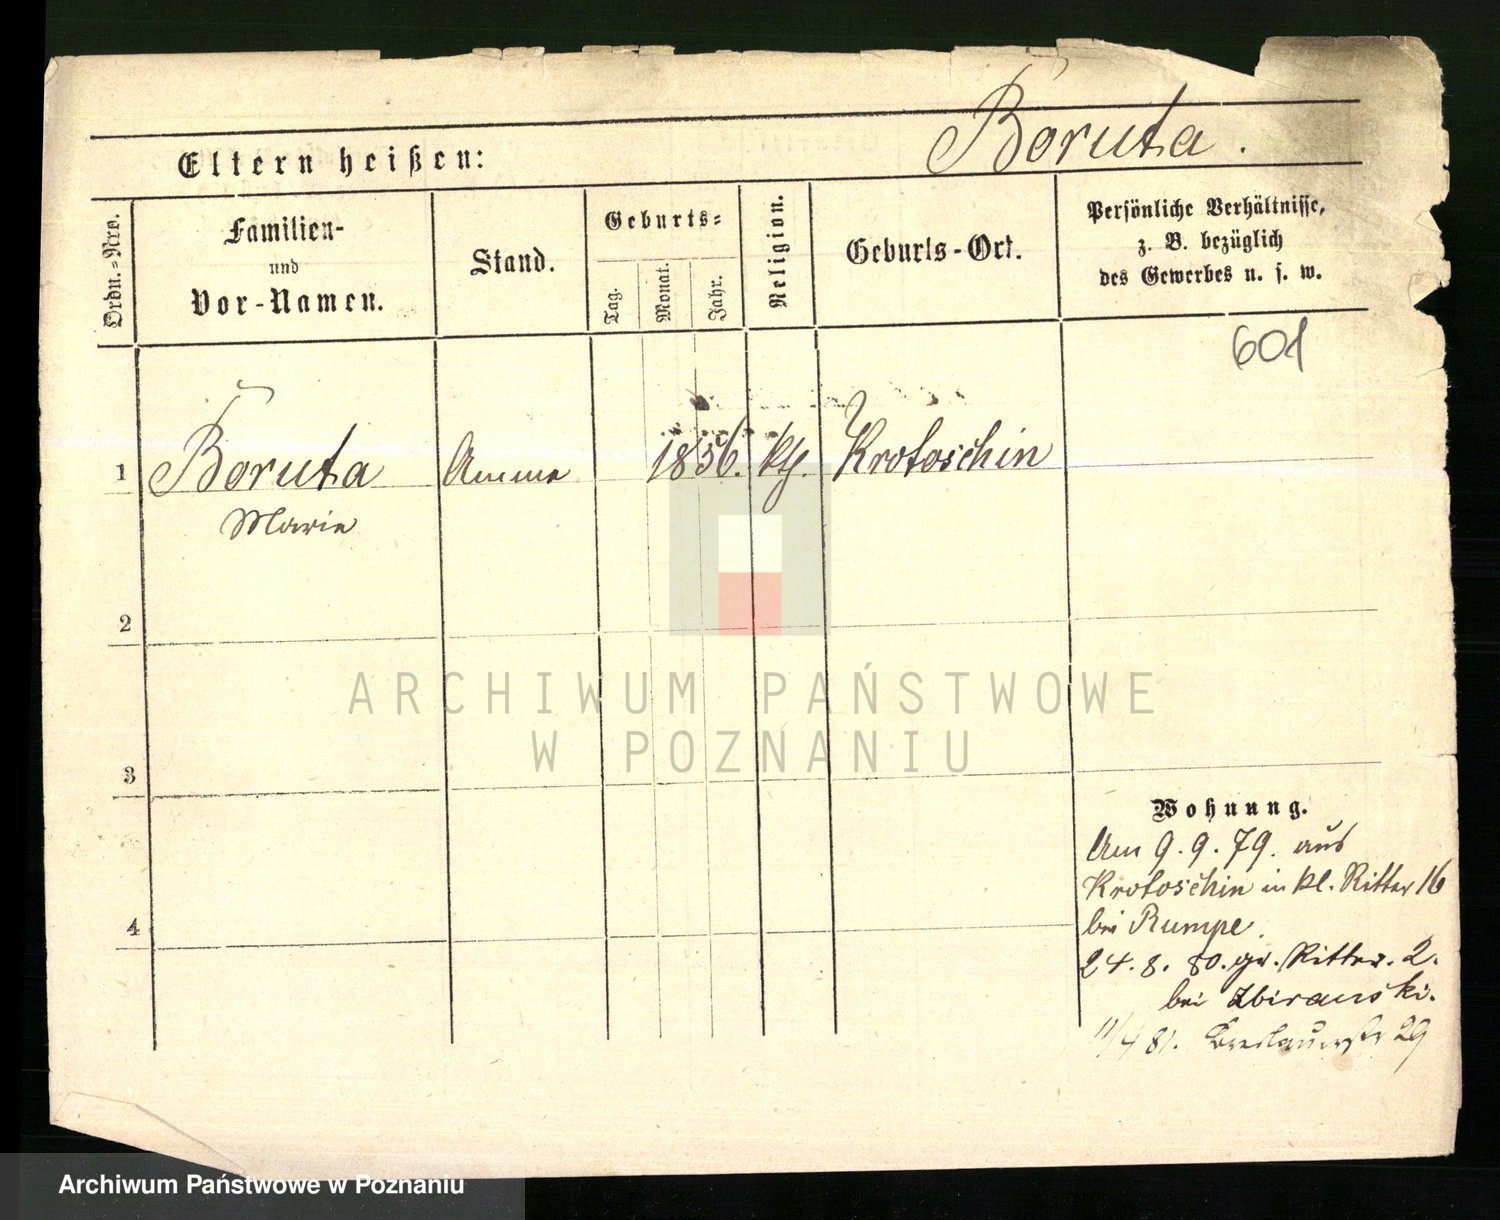 Boruta.
Eltern heißen:
Ordn.-Nro.
Familien-
und
Vor-Namen.
Stand.
Geburts-
Tag.
Monat.
Jahr.
Religion.
Geburts-Ort.
Persönliche Verhältnisse,
z. B. bezüglich
des Gewerbes u. s. w.
601
1 Boruta Amme 1856. kth. Krotoschin
Marie
2
3
4
Wohnung.
Am 9.9.79. aus
Krotoschin in kl. Ritter 16
bei Rumpe.
24.8.80. gr. Ritter. 2.
bei
11/4 81. Breslauerstr 29
ARCHIWUM PAŃSTWOWE
W POZNANIU
Archiwum Państwowe w Poznaniu